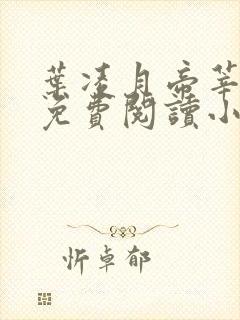 葉凌月帝莘
免費閱讀小
忻卓郁